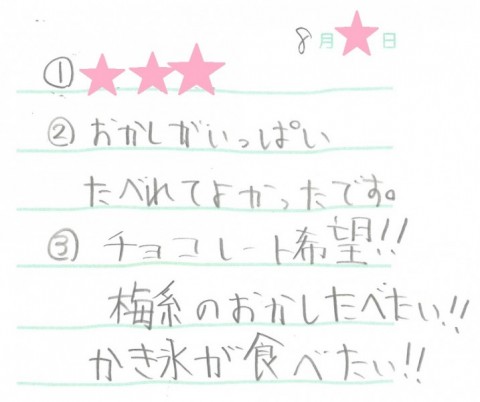 8月 日
①
②おかしがいっぱい
たべれてよかったです。
③チョコレート希望!!
梅系のおかしたべたい!!
かき氷が食べたい!!